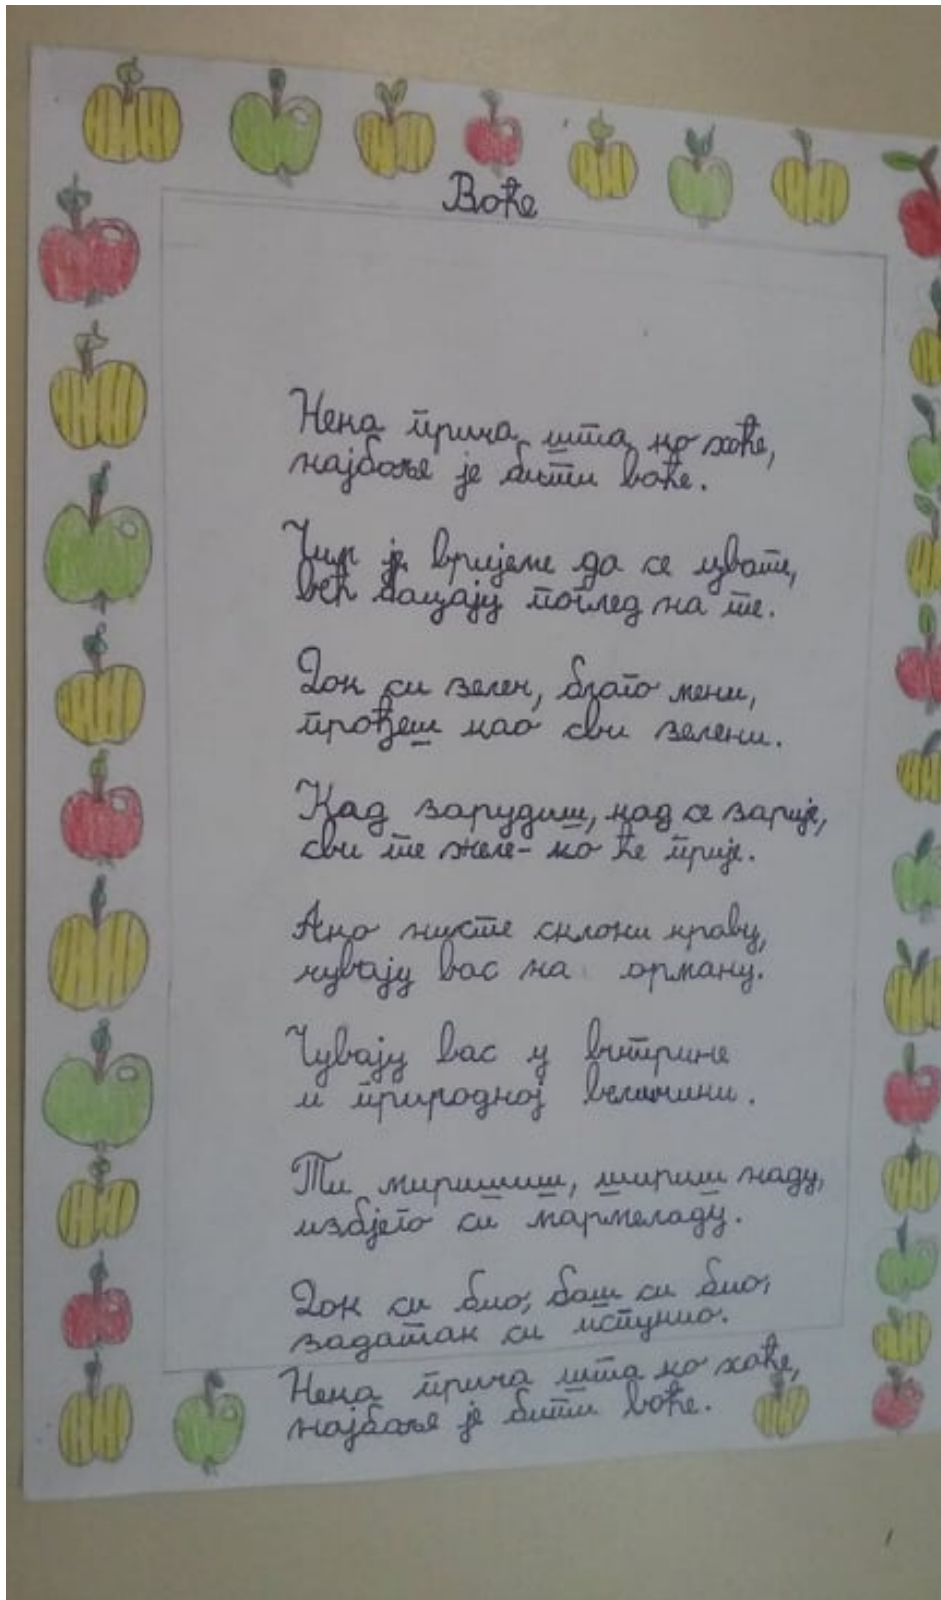 Воће
Нека прича шта ко хоће,
најбоље је бити воће.
Чим је вријеме да се цвате,
већ бацају поглед на те.
Док си зелен, благо мени,
прођеш као сви зелени.
Кад зарудиш, кад се зарије,
сви те желе - ко ће прије.
Ако нисте склони краву,
чувају вас на орману.
Чувају вас у витрине
и природној величини.
Ти миришиш, шириш наду,
избјего си мармеладу.
Док си био, баш си био,
задатак си испунио.
Нека прича шта ко хоће,
најбоље је бити воће.